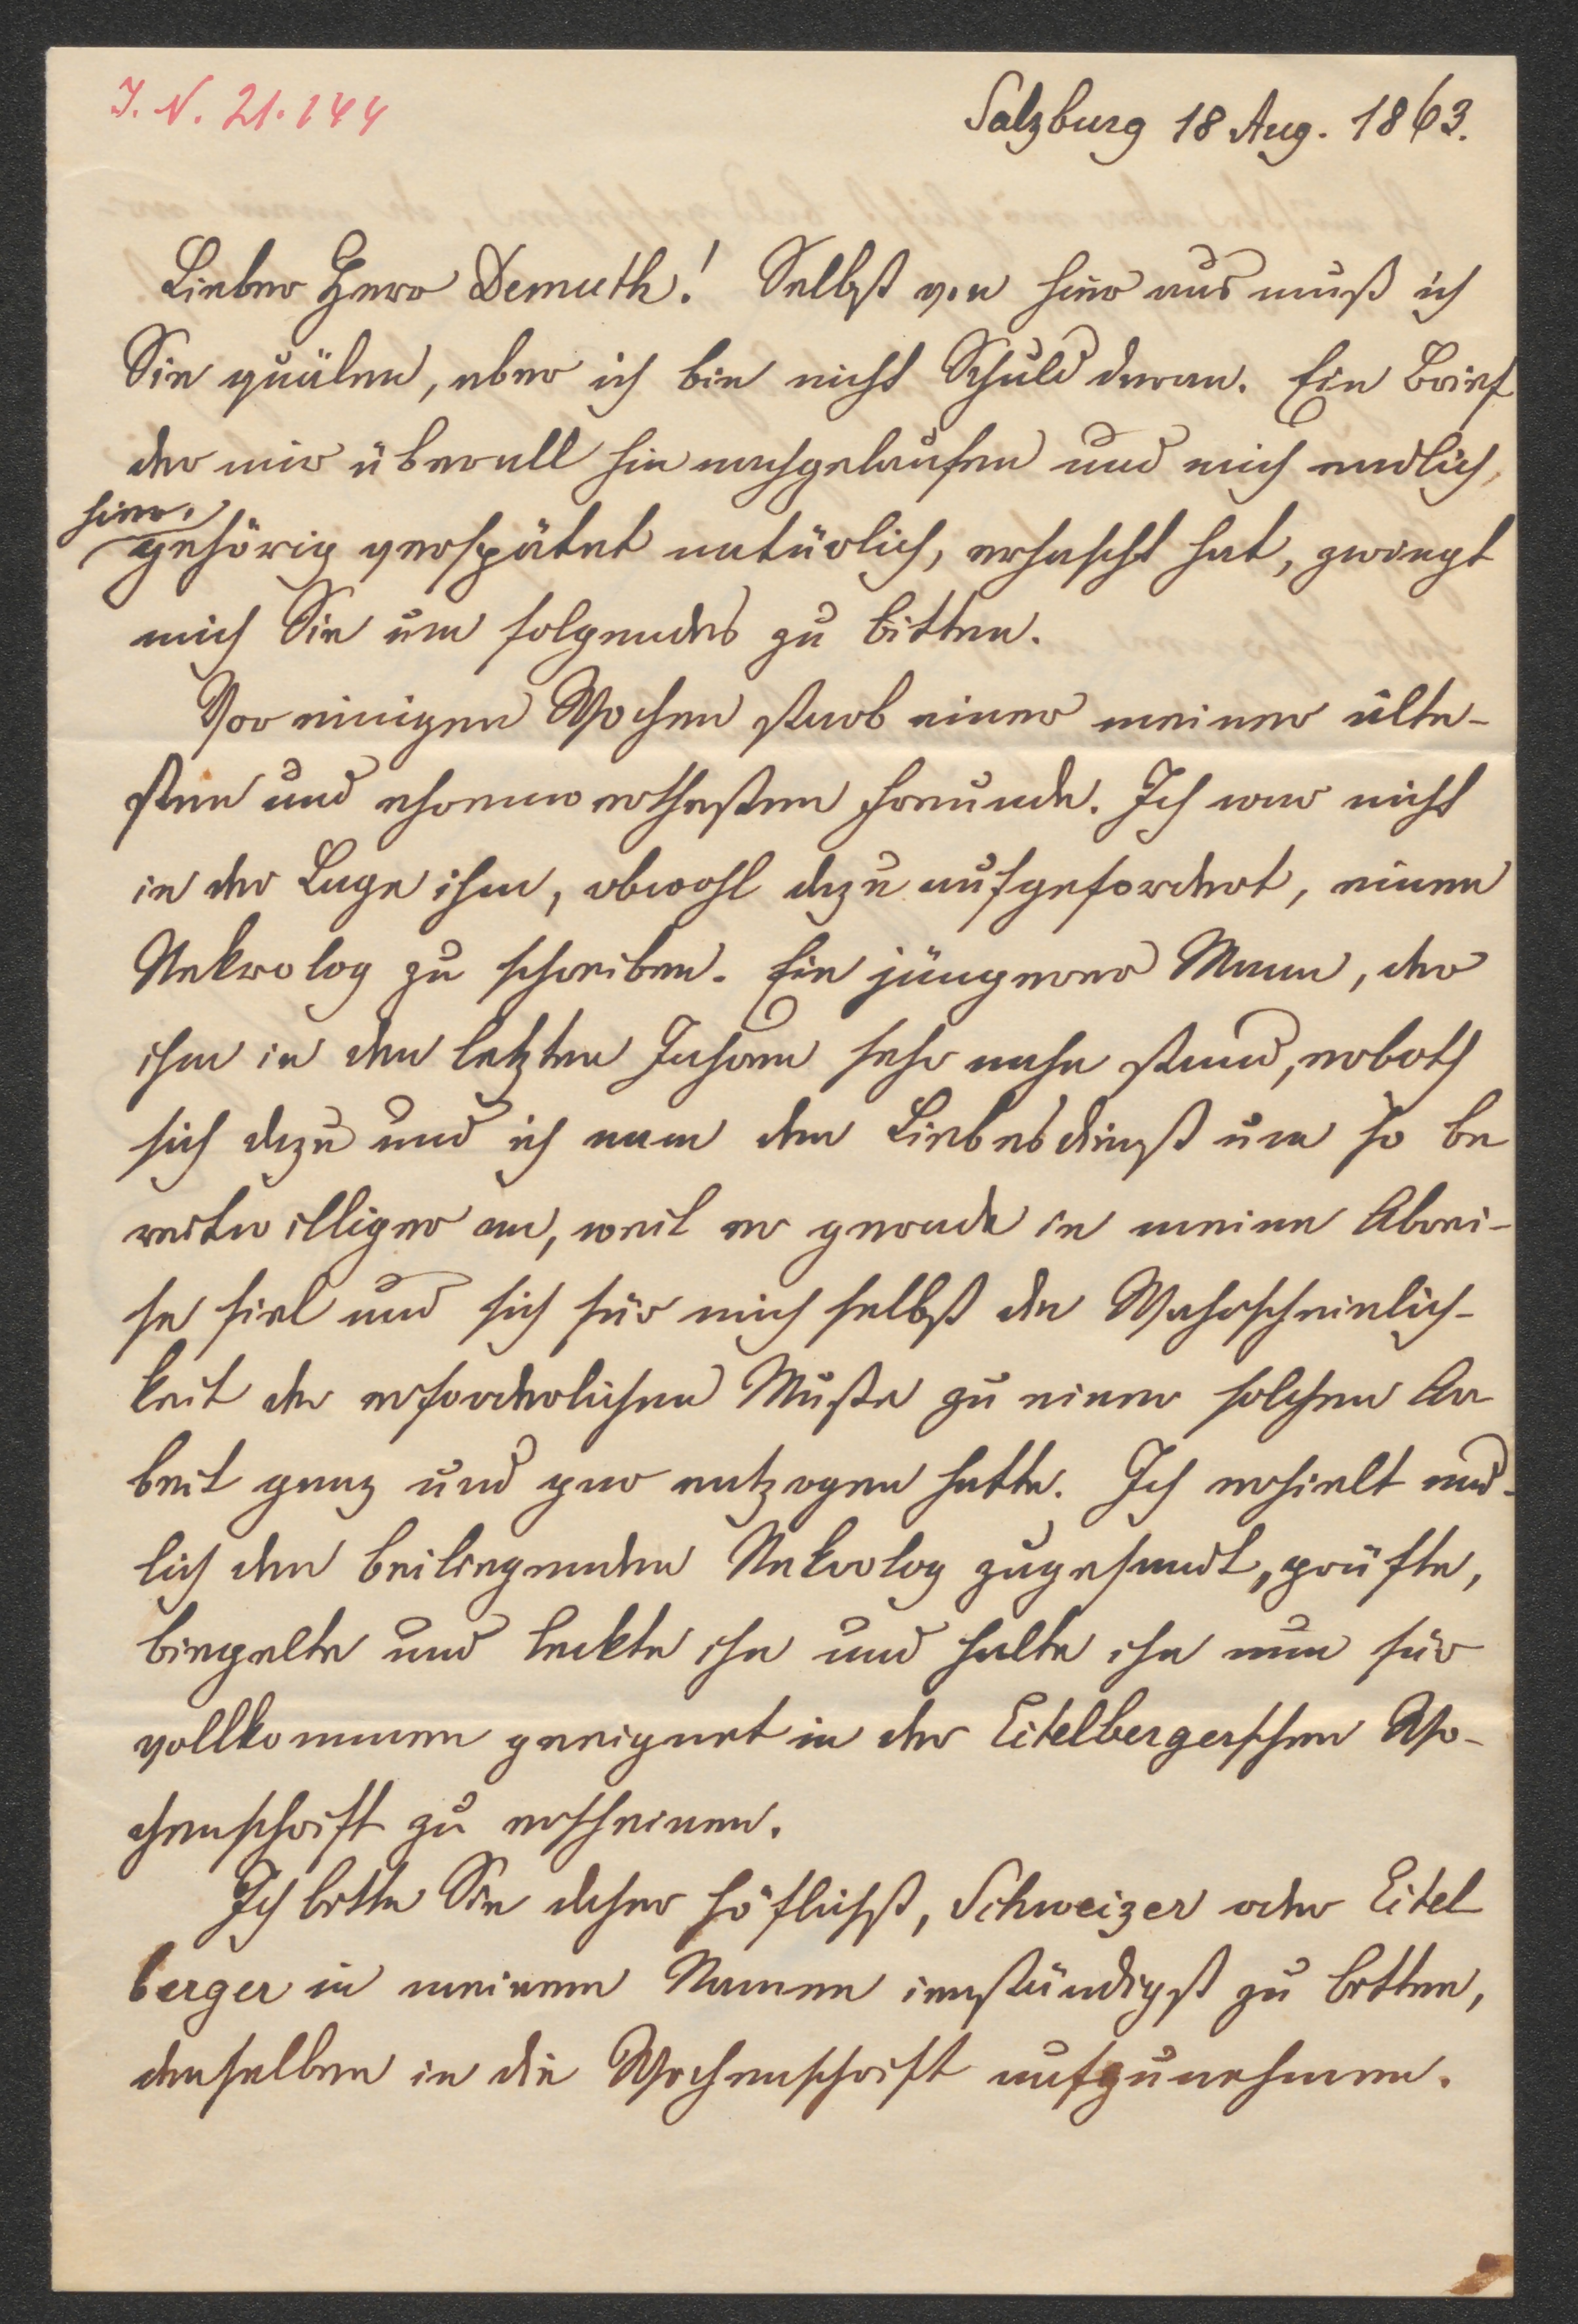 I. N. 21.144
Salzburg 18 Aug. 1863.
Lieber Herr Demuth! Selbst von hier aus muß ich
Sie quälen, aber ich bin nicht Schuld daran. Ein Brief
der mir überall hin nachgelaufen und mich endlich,
hier,
gehörig verspätet natürlich, erhascht hat, zwingt
mich Sie um folgendes zu bitten.
Vor einigen Wochen starb einer meiner älte-
sten und ehrenwerthesten Freunde. Ich war nicht
in der Lage ihm, obwohl dazu aufgefordert, einen
Nekrolog zu schreiben. Ein jüngerer Mann, der
ihm in den letzten Jahren sehr nahe stand, erboth
sich dazu und ich nam den Liebesdienst um so be
reitwilliger an, weil er gerade in meine Abrei-
se fiel und sich für mich selbst die Wahrscheinlich-
keit der erforderlichen Muße zu einer solchen Ar
beit ganz und gar entzogen hatte. Ich erhielt end-
lich den beiliegenden Nekrolog zugesandt, prüfte,
biegelte und leckte ihn und halte ihn nun für
vollkommen geeignet in der Eitelbergerschen Wo-
chenschrift zu erscheinen.
Ich bitte Sie daher höflichst, Schweizer oder Eitel
berger in meinem Namen inständigst zu bitten,
denselben in die Wochenschrift aufzunehmen.